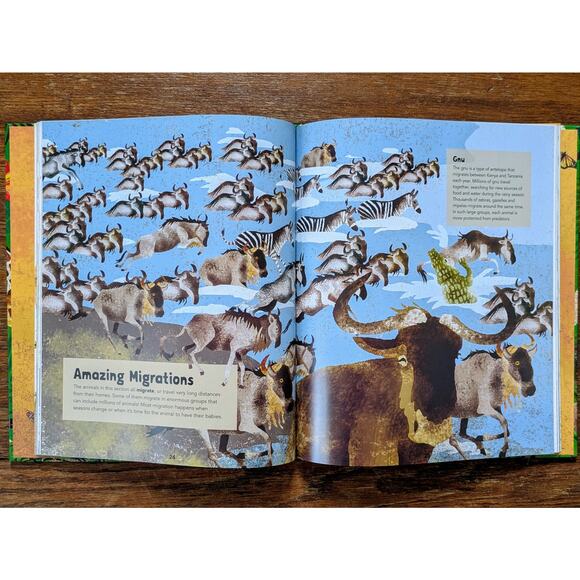 Amazing Migrations
The animals in this section all migrate, or travel very long distances
from their homes. Some of them migrate in enormous groups that
can include millions of animals! Most migration happens when
seasons change or when it's time for the animal to have their babies.
24
Gnu
The gnu is a type of antelope that
migrates between Kenya and Tanzania
each year. Millions of gnu travel
together, searching for new sources of
food and water during the rainy season.
Thousands of zebras, gazelles and
impalas migrate around the same time.
In such large groups, each animal is
more protected from predators.